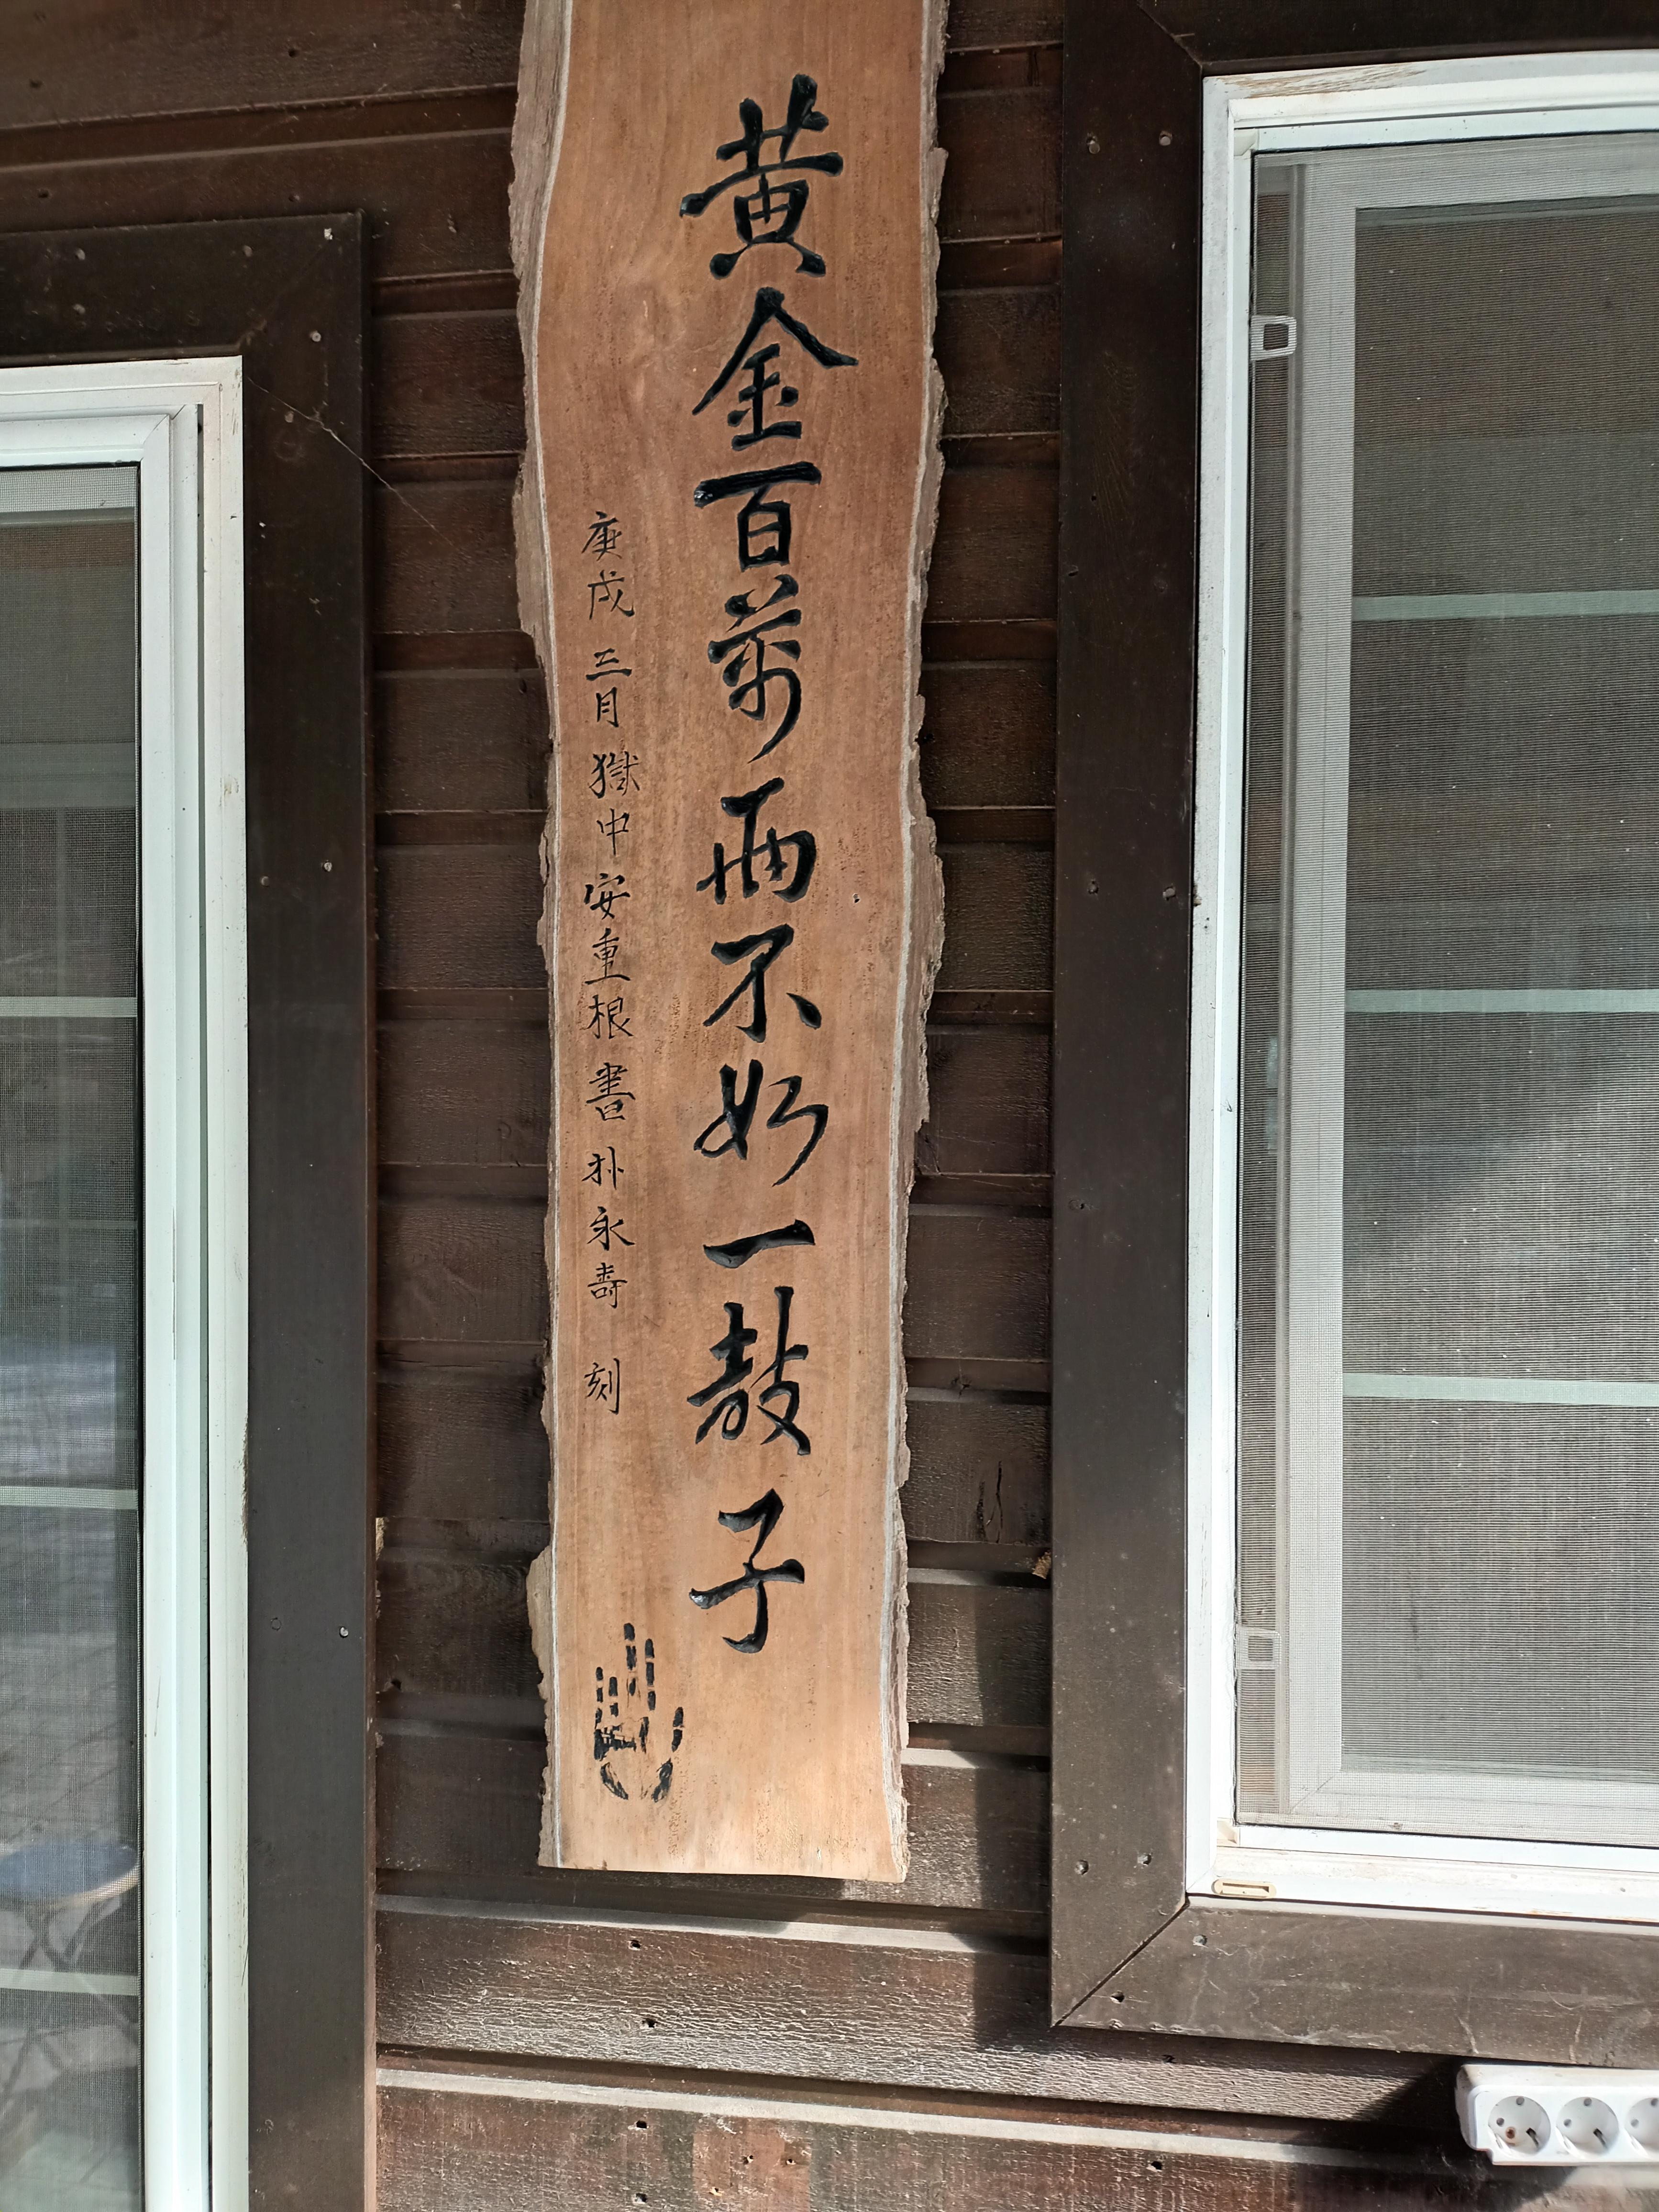 黄金百萬兩不如一敎子
庚戌 三月 獄中 安重根 書 朴永壽 刻